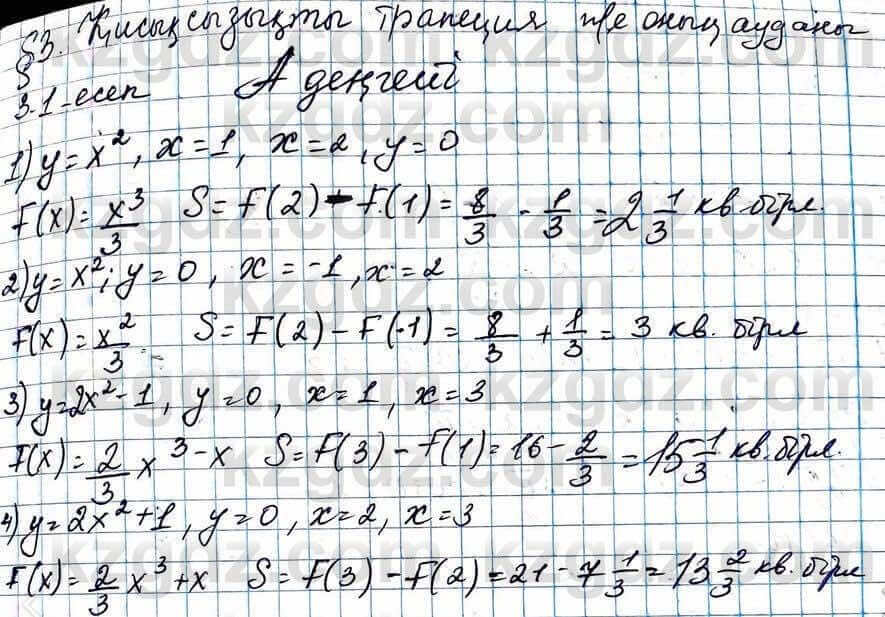 §3. Қисықсызықты трапеция және оның ауданы
А деңгейі
3.1-есеп
1) y = x², x = 1, x = 2, y = 0
F(x) = x³/3 S = F(2) - F(1) = 8/3 - 1/3 = 2 1/3 кв. бірл.
2) y = x²; y = 0, x = -1, x = 2
F(x) = x²/3 S = F(2) - F(-1) = 8/3 + 1/3 = 3 кв. бірл
3) y = 2x² - 1, y = 0, x = 1, x = 3
F(x) = 2/3 x³ - x S = F(3) - F(1) = 16 - 2/3 = 15 1/3 кв. бірл.
4) y = 2x² + 1, y = 0, x = 2, x = 3
F(x) = 2/3 x³ + x S = F(3) - F(2) = 21 - 7 1/3 = 13 2/3 кв. бірл
kzgdz.com